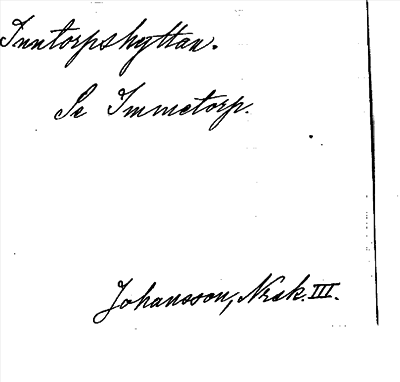 Inntorpshyttan.
Se Immetorp.
Johansson, Nrsk. III.